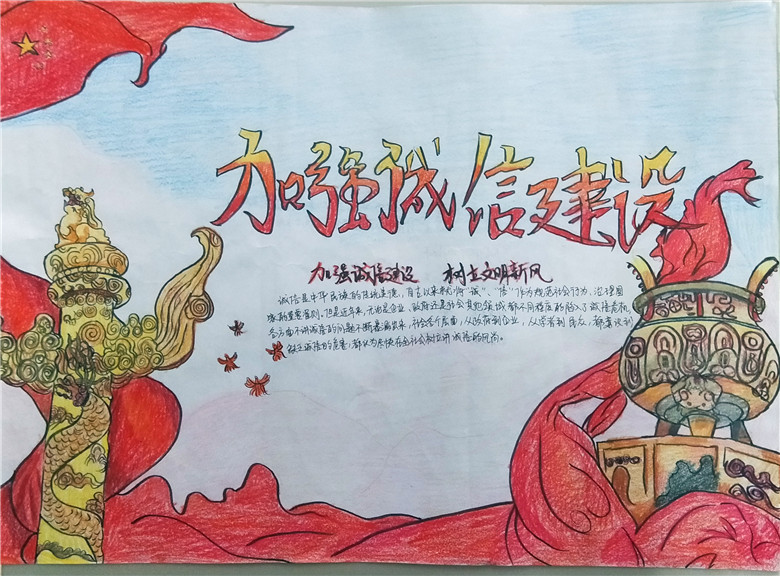 加强诚信建设
加强诚信建设 树立文明新风
诚信是中华民族的传统美德,自古以来就将“诚”、“信”作为规范社会行为,治理国
家的重要准则,但是近年来,无论是企业、政府还是社会其他领域都不同程度的陷入了诚信危机,
各方面不讲诚信的问题不断暴漏出来,社会各个层面,从政府到企业,从学者到民众,都意识到
缺乏诚信的危害,都认为尽快在全社会树立讲诚信的风尚。